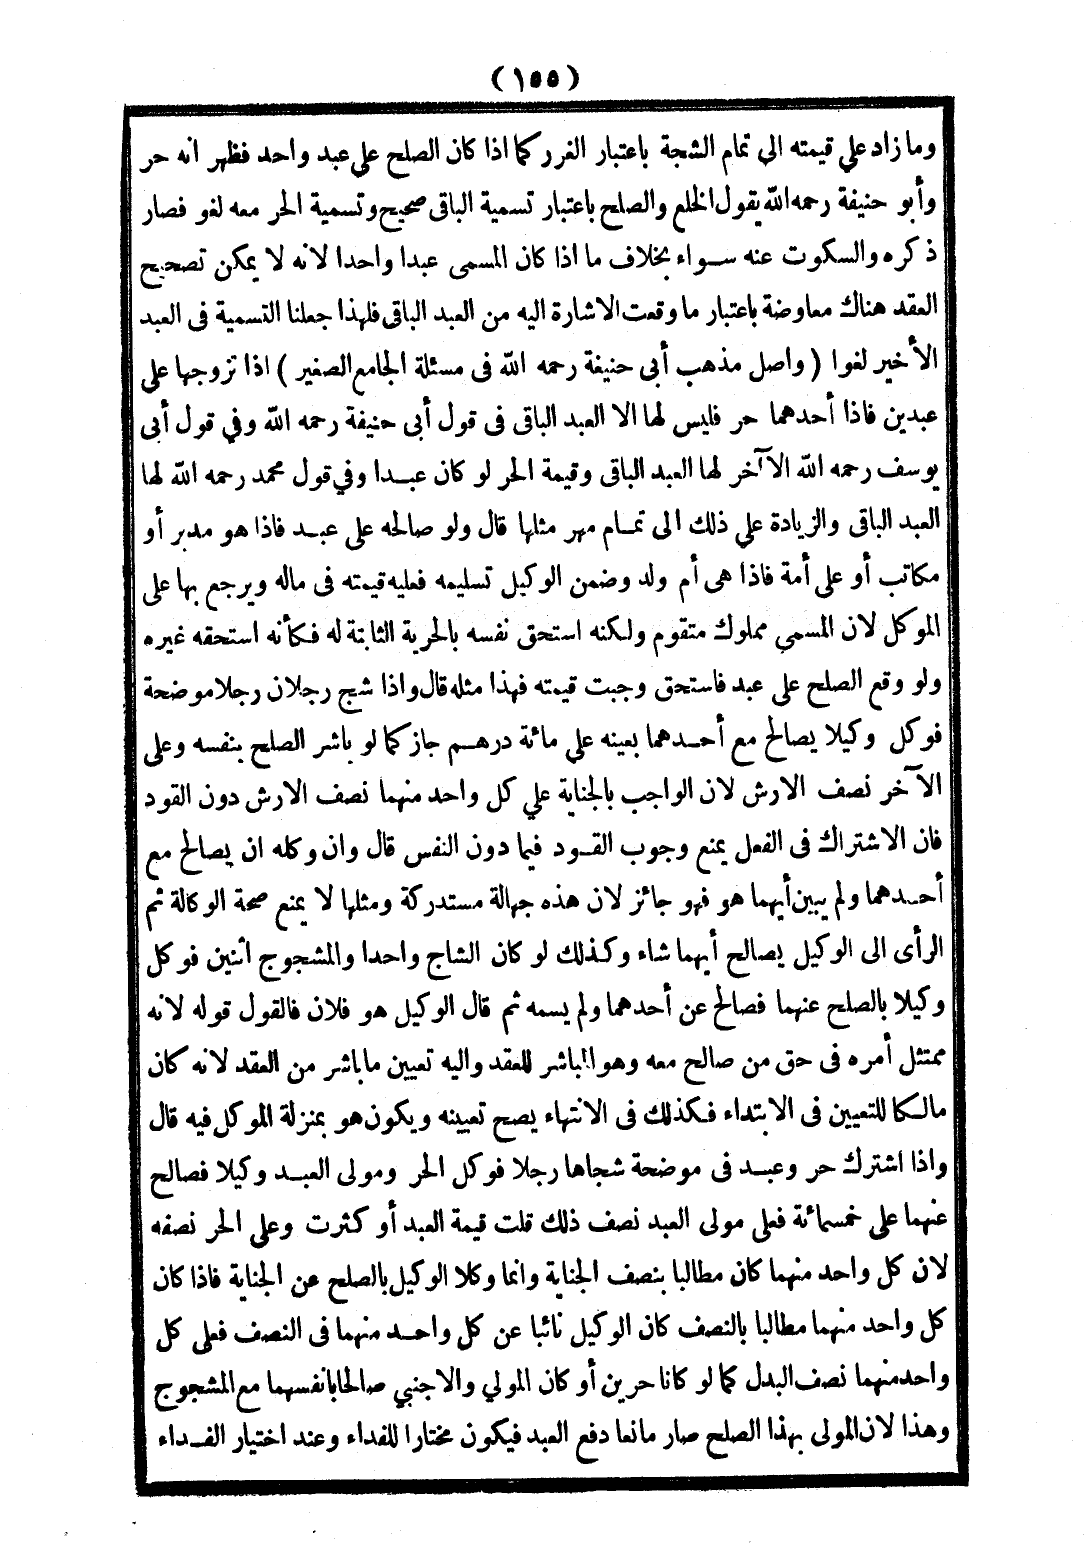 (١٥٥)
وما زاد علي قيمته الى تمام الشجة باعتبار الغرر كما اذا كان الصلح علي عبد واحد فظهر انه حر
وأبو حنيفة رحمه الله يقول الخلع والصلح باعتبار تسمية الباقى صحيح وتسمية الحر معه لغو فصار
ذكره والسكوت عنه سواء بخلاف ما اذا كان المسمى عبدا واحدا لانه لا يمكن تصحيح
العقد هناك معاوضة باعتبار ما وقعت الاشارة اليه من العبد الباقى فلهذا جعلنا التسمية فى العبد
الأخير لغوا ( واصل مذهب أبى حنيفة رحمه الله فى مسئلة الجامع الصغير ) اذا تزوجها علي
عبدين فاذا أحدهما حر فليس لها الا العبد الباقى فى قول أبى حنيفة رحمه الله وفي قول أبى
يوسف رحمه الله الآخر لها العبد الباقى وقيمة الحر لو كان عبدا وفي قول محمد رحمه الله لها
العبد الباقى والزيادة علي ذلك الى تمام مهر مثلها قال ولو صالحه على عبد فاذا هو مدبر أو
مكاتب أو على أمة فاذا هى أم ولد وضمن الوكيل تسليمه فعليه قيمته فى ماله ويرجع بها على
الموكل لان المسمي مملوك متقوم ولكنه استحق نفسه بالحرية الثابتة له فكأنه استحقه غيره
ولو وقع الصلح على عبد فاستحق وجبت قيمته فهذا مثله قال واذا شج رجلان رجلا موضحة
فوكل وكيلا يصالح مع أحدهما بعينه علي مائة درهم جاز كما لو باشر الصلح بنفسه وعلى
الآخر نصف الارش لان الواجب بالجناية علي كل واحد منهما نصف الارش دون القود
فان الاشتراك فى الفعل يمنع وجوب القود فيما دون النفس قال وان وكله ان يصالح مع
أحدهما ولم يبين أيهما هو فهو جائز لان هذه جهالة مستدركة ومثلها لا يمنع صحة الوكالة ثم
الرأى الى الوكيل يصالح أيهما شاء وكذلك لو كان الشاج واحدا والمشجوج اثنين فوكل
وكيلا بالصلح عنهما فصالح عن أحدهما ولم يسمه ثم قال الوكيل هو فلان فالقول قوله لانه
ممتثل أمره فى حق من صالح معه وهو المباشر للعقد واليه تعيين ما باشر من العقد لانه كان
مالكا للتعيين فى الابتداء فكذلك فى الانتهاء يصح تعيينه ويكون هو بمنزلة الموكل فيه قال
واذا اشترك حر وعبد فى موضحة شجاها رجلا فوكل الحر ومولى العبد وكيلا فصالح
عنهما على خمسمائة فعلى مولى العبد نصف ذلك قلت قيمة العبد أو كثرت وعلي الحر نصفه
لان كل واحد منهما كان مطالبا بنصف الجناية وانما وكلا الوكيل بالصلح عن الجناية فاذا كان
كل واحد منهما مطالبا بالنصف كان الوكيل نائبا عن كل واحد منهما فى النصف فعلى كل
واحد منهما نصف البدل كما لو كانا حرين أو كان المولي والاجنبي صالحا بانفسهما مع المشجوج
وهذا لان المولى بهذا الصلح صار مانعا دفع العبد فيكون مختارا للفداء وعند اختيار الفداء